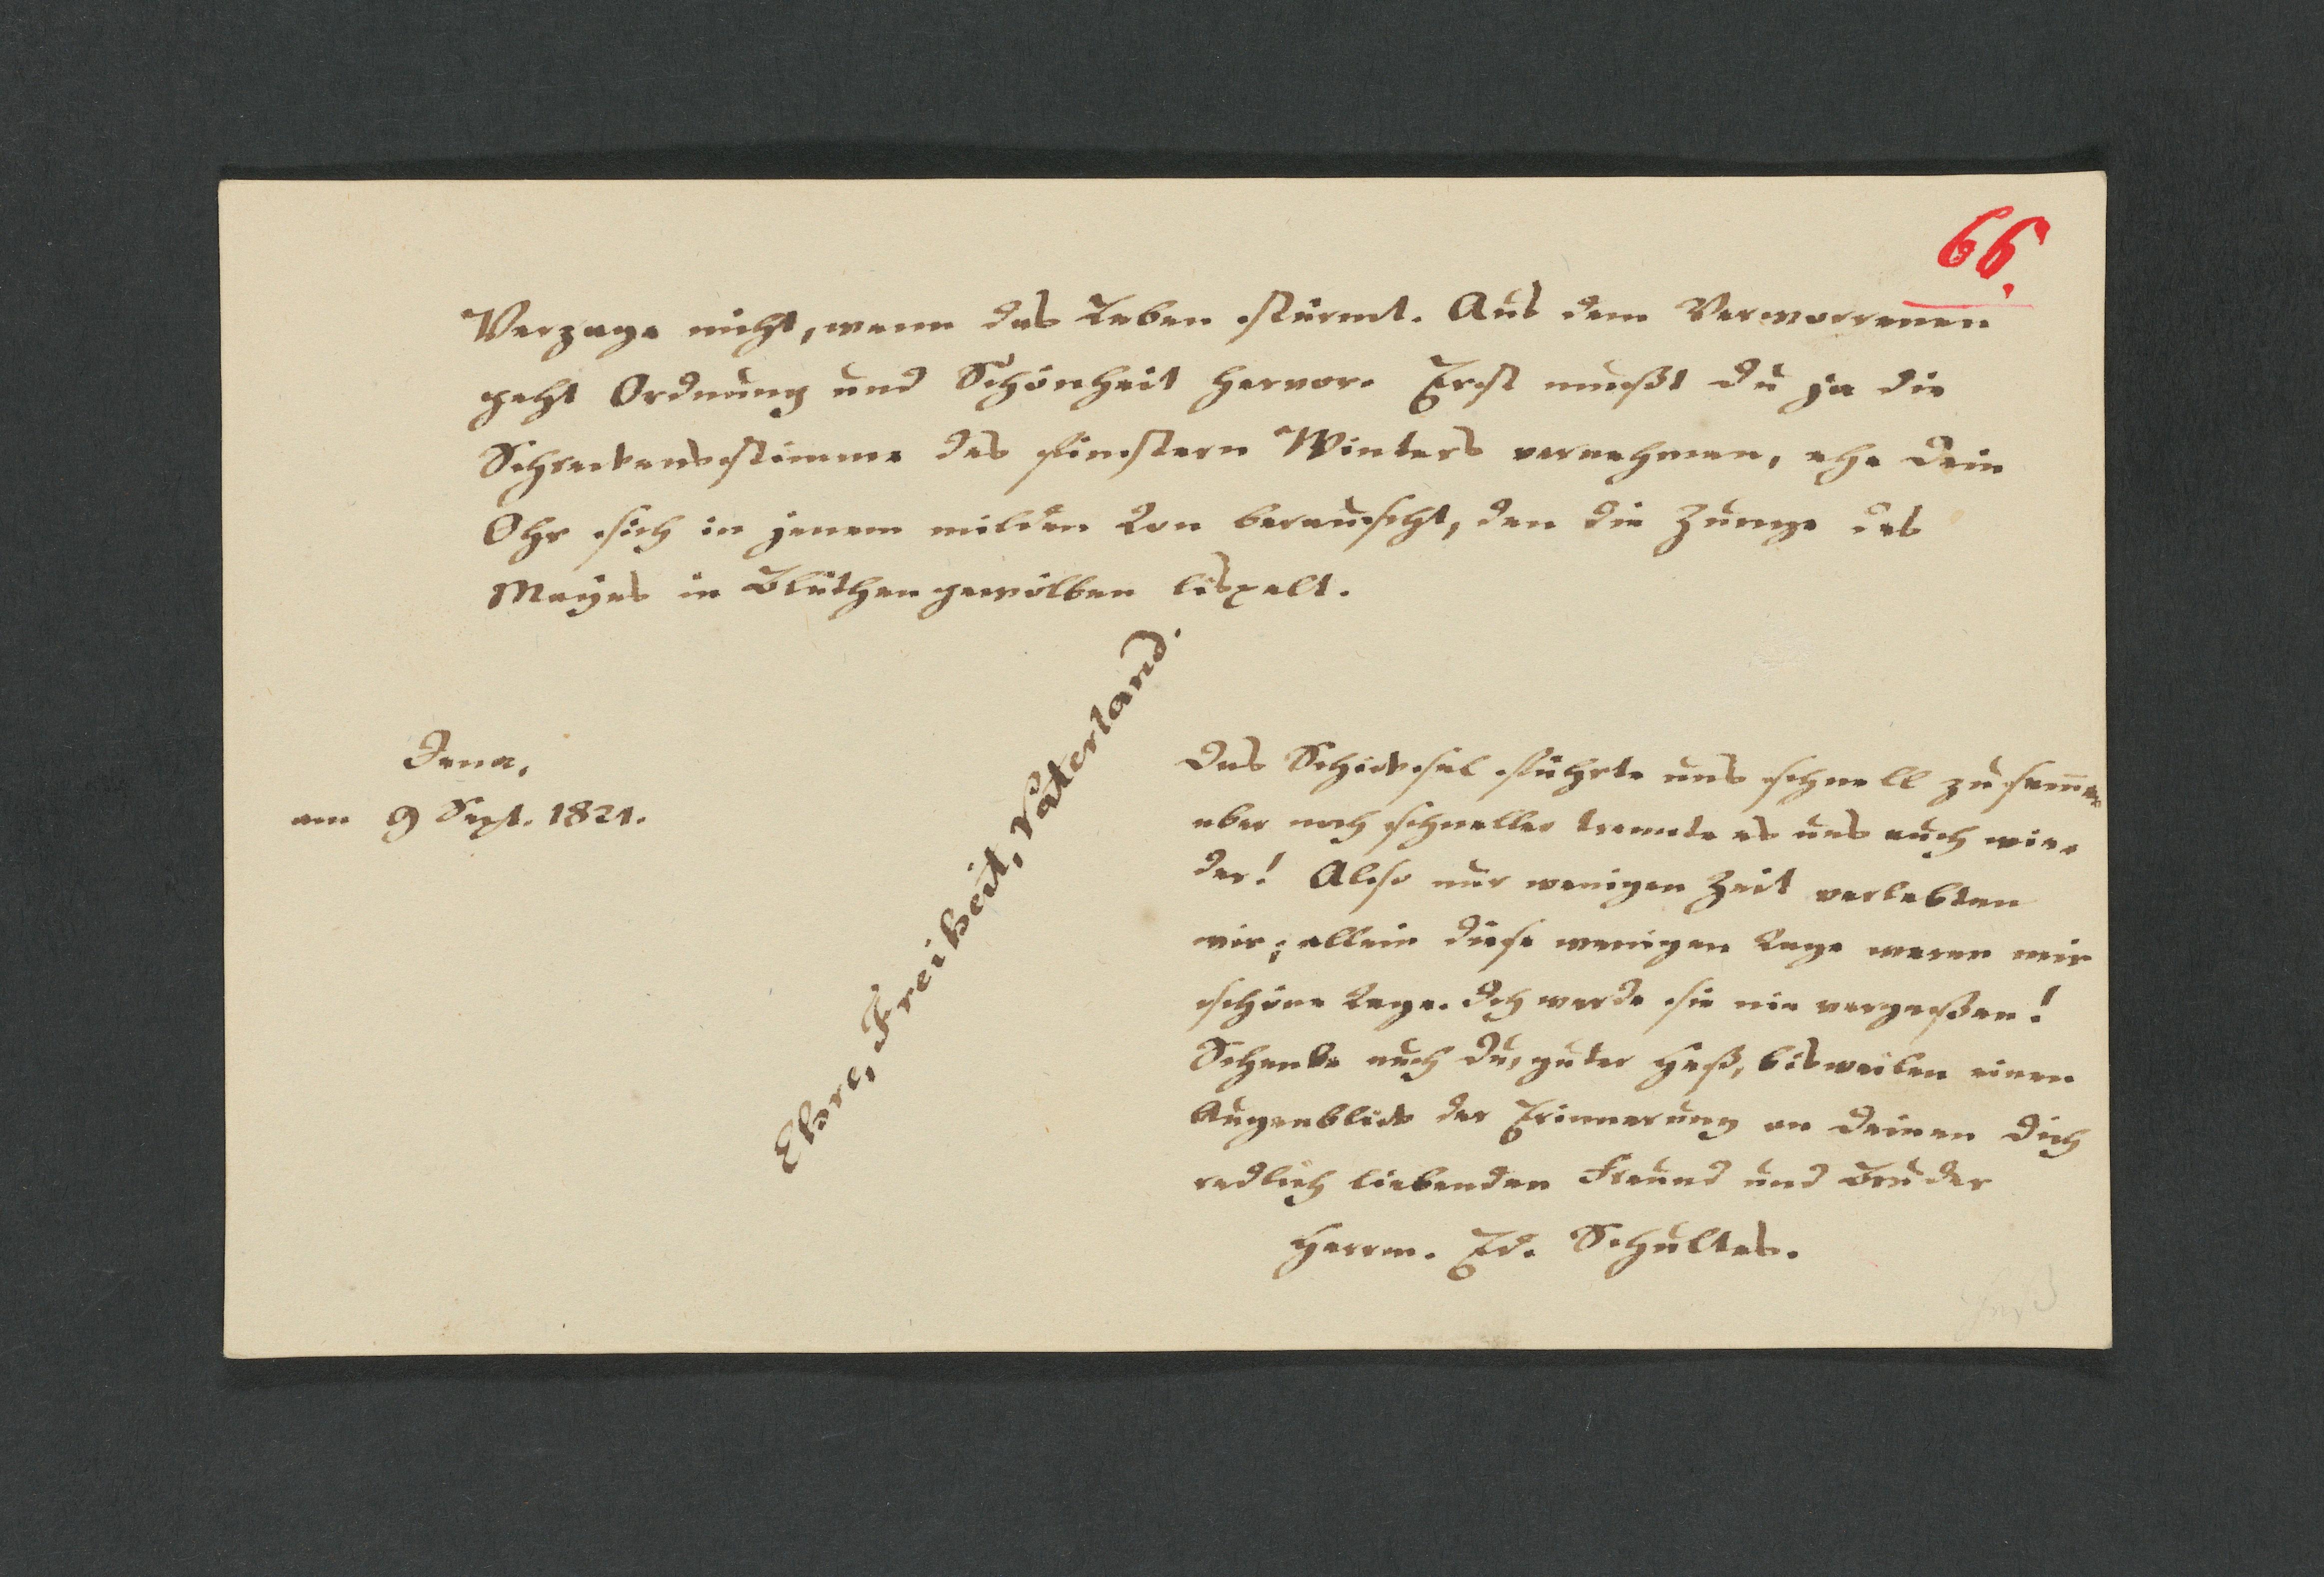 66.
Verzage nicht, wenn das Leben stürmt. Aus dem Verworrenen
geht Ordnung und Schönheit hervor. Erst mußt du ja die
Schreckensstimme des finstern Winters vernehmen, ehe dein
Ohr sich in jenem milden Ton berauscht, den die Zunge des
Mayes in Blüthengewölben lispelt.
Jena,
am 9 Sept. 1821.
Ehre, Freiheit, Vaterland.
Das Schicksal führte uns schnell zusam̄en
aber noch schneller trennte es uns auch wie-
der! Also nur wenigen Zeit verlebten
wir; allein diese wenigen Tage waren mir
schöne Tage. Ich werde sie nie vergeßen!
Schenke auch du, guter Heß, bisweilen einen
Augenblick der Erinnerung an deinen dich
redlich liebenden Freund und Bruder
Herrm. Ed. Schultes.